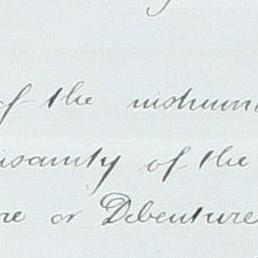 of the instrum
isanity of the
re or Debenture